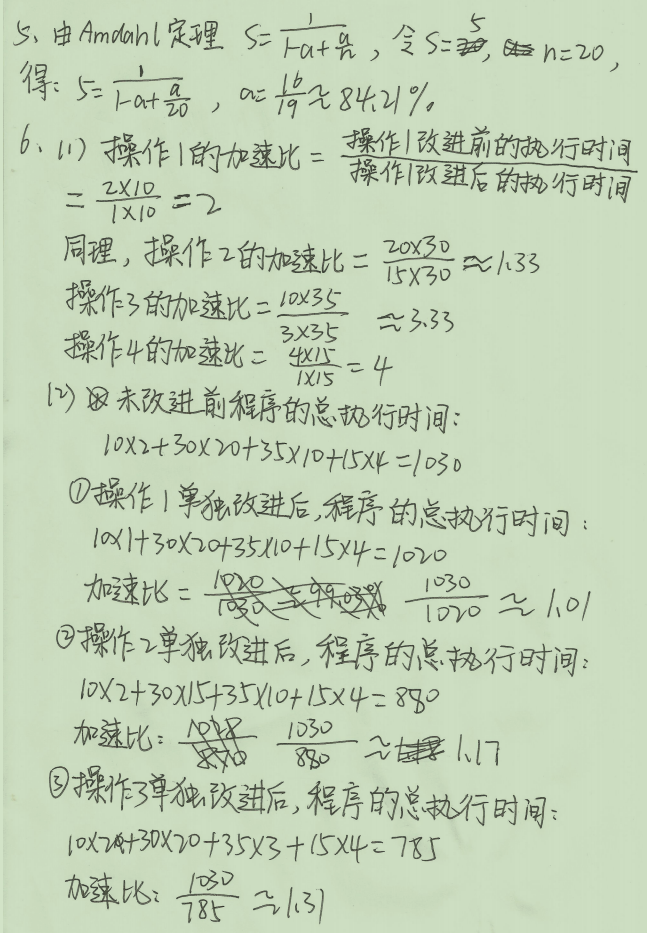 5、由Amdahl定理 S=1/(1-a+a/n)，令S=5，n=20，
得：5=1/(1-a+a/20)，a=16/19≈84.21%。
6、(1) 操作1的加速比=操作1改进前的执行时间/操作1改进后的执行时间
=2×10/1×10=2
同理，操作2的加速比=20×30/15×30≈1.33
操作3的加速比=10×35/3×35 ≈3.33
操作4的加速比=4×15/1×15=4
(2) 未改进前程序的总执行时间：
10×2+30×20+35×10+15×4=1030
①操作1单独改进后，程序的总执行时间：
10×1+30×20+35×10+15×4=1020
加速比=1030/1020≈1.01
②操作2单独改进后，程序的总执行时间：
10×2+30×15+35×10+15×4=880
加速比：1030/880≈1.17
③操作3单独改进后，程序的总执行时间：
10×2+30×20+35×3+15×4=785
加速比：1030/785≈1.31